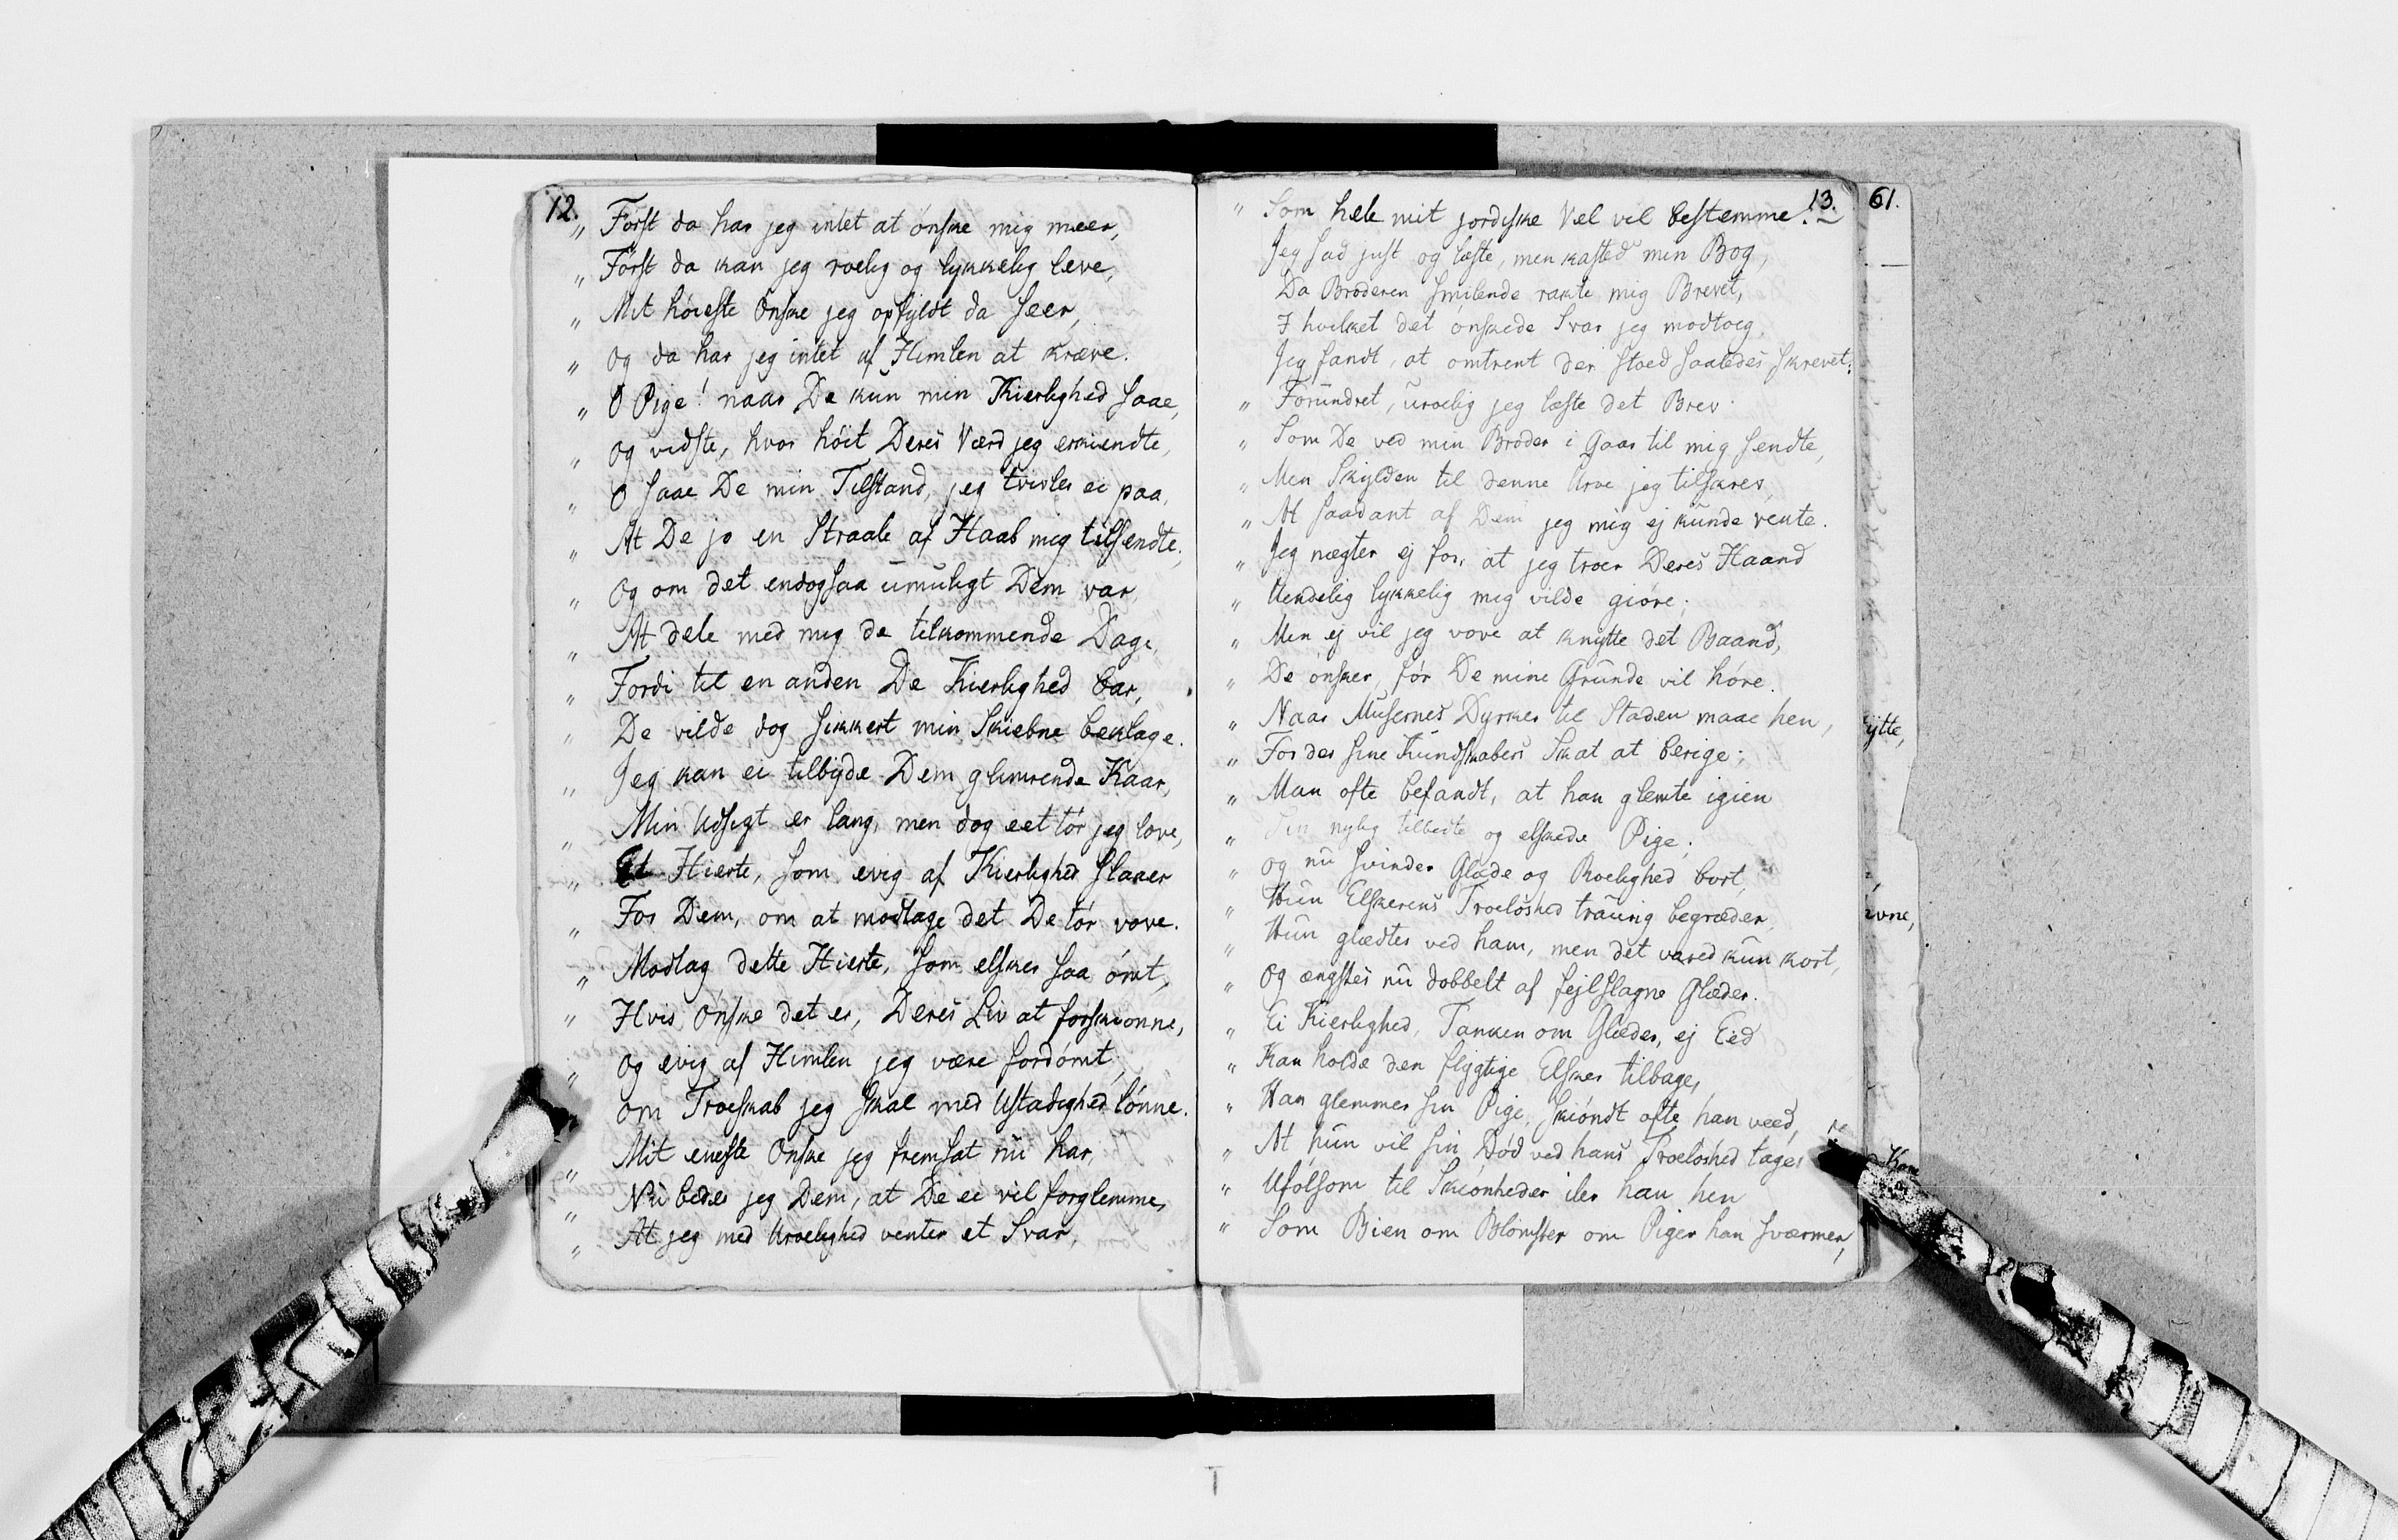 12.
„ Först da har jeg intet at önske mig meer,
„ Först da kan jeg roelig og lykkelig leve,
„ Mit höieste Önske jeg opfyldt da seer,
„ Og da har jeg intet af Himlen at kræve.
„ O Pige! naar De kun min Kierlighed saae,
„ Og vidste, hvor höit Deres Værd jeg erkiendte,
„ O saae De min Tilstand, jeg tvivler ei paa,
„ At De jo en Straale af Haab mig tilsendte;
„ Og om det endogsaa umuligt Dem var
„ At dele med mig de tilkommende Dage,
„ Fordi til en anden De Kierlighed bar,
„ De vilde dog sikkert min Skiebne beklage.
„ Jeg kan ei tilbyde Dem glimrende Kaar,
„ Min Udsigt er lang, men dog eet tör jeg love,
„ Et Hierte, som evig af Kierlighed slaaer
„ For Dem, om at modtage det De tör vove.
„ Modtag dette Hierte, som elsker saa ömt,
„ Hvis Önske det er, Deres Liv at forskiönne,
„ Og evig af Himlen jeg være fordömt,
„ Om Troeskab jeg skal med Ustadighed lönne.
„ Mit eneste Önske jeg fremsat nu har,
„ Nu beder jeg Dem, at De ei vil forglemme,
„ At jeg med Uroelighed venter et Svar,
13.
„ Som hele mit jordiske Vel vil bestemme.
Jeg sad just og læste, men kasted min Bog,
Da Broderen smilende rakte mig Brevet,
I hvilket det önskede Svar jeg modtog,
Jeg fandt, at omtrent der stoed saaledes skrevet:
„ Forundret, uroelig jeg læste det Brev
„ Som De ved min Broder i Gaar til mig sendte,
„ Men Skylden til denne Uroe jeg tilskrev,
„ At saadant af Dem jeg mig ej kunde vente.
„ Jeg nægter ej for, at jeg troer Deres Haand
„ Uendelig lykkelig mig vilde giöre;
„ Men ej vil jeg vove at knytte det Baand,
„ De önsker, för De mine Grunde vil höre.
„ Naar Musernes Dyrker til Staden maae hen,
„ For der sine Kundskabers Skat at berige;
„ Man ofte befandt, at han glemte igien
„ Sin nylig tilbedte og elskede Pige;
„ Og nu svinder Glæde og Roelighed bort,
„ Hun Elskerens Troelöshed traurig begræder,
„ Hun glædtes ved ham, men det vared kun kort,
„ Og ængstes nu dobbelt af fejlslagne Glæder.
„ Ei Kierlighed, Tanken om Glæder, ej Eed
„ Kan holde den flygtige Elsker tilbage,
„ Han glemmer sin Pige, skiöndt ofte han veed,
„ At hun vil sin Död ved hans Troelöshed tage;
„ Ufölsom til Skiönheder iler han hen
„ Som Bien om Blomster om Piger han sværmer,
61.
ytte,
Kan